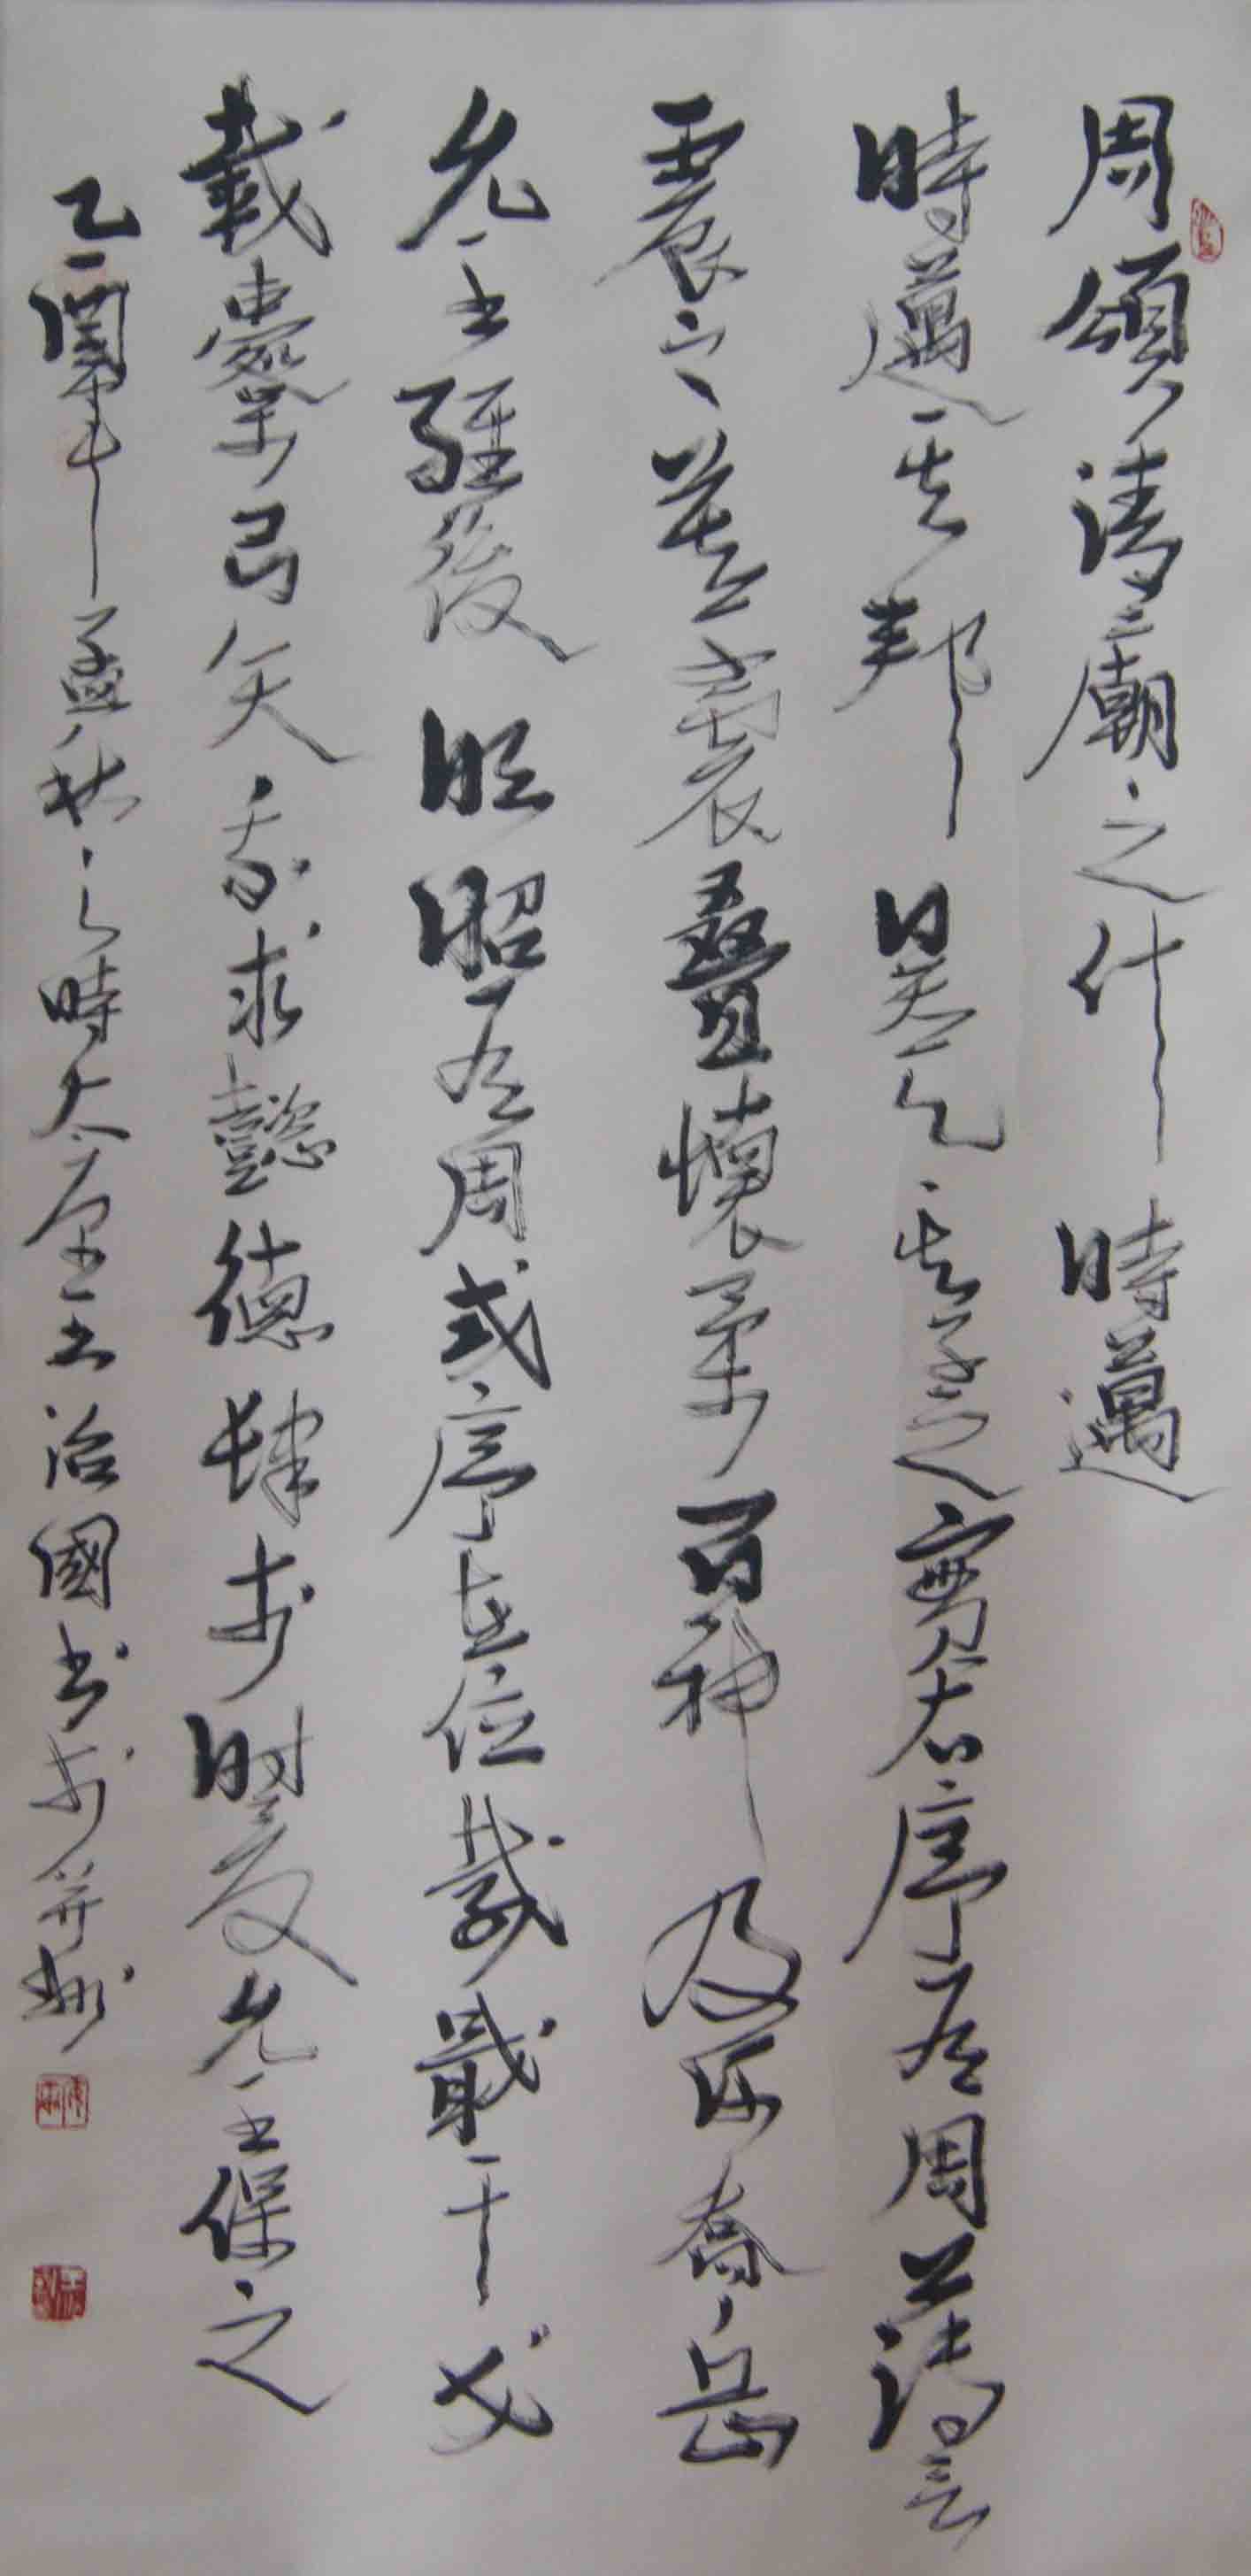 周頌清廟之什 時邁
時邁其邦昊天其子之實右序有周薄言
震之莫不震疊懷柔百神及河喬岳
允王維後明昭有周式序在位載戢干戈
載櫜弓矢我求懿德肆于时夏允王保之
乙年孟秋之時太原王治國书於并州